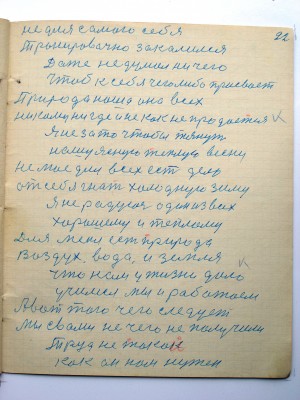 22
не для самого себя
Тренировочно закалился
Даже не думал ничего
Чтоб к себе чего либо присвоеть
Природа наша она всех
никому нигде и не как не продается
Я не за то чтобы тянут
нашу ясную теплую весну
не мое для всех ест дело
от себя гнат холодную зиму
Я не радуюс один из вас
хорошему и теплому
Для меня есть природа
Воздух, вода, и земля
Что нам у жизни дало
учимся мы и работаем
А вот того чего следует
Мы с вами не чего не получили
Труд не такой
как он нам нужен